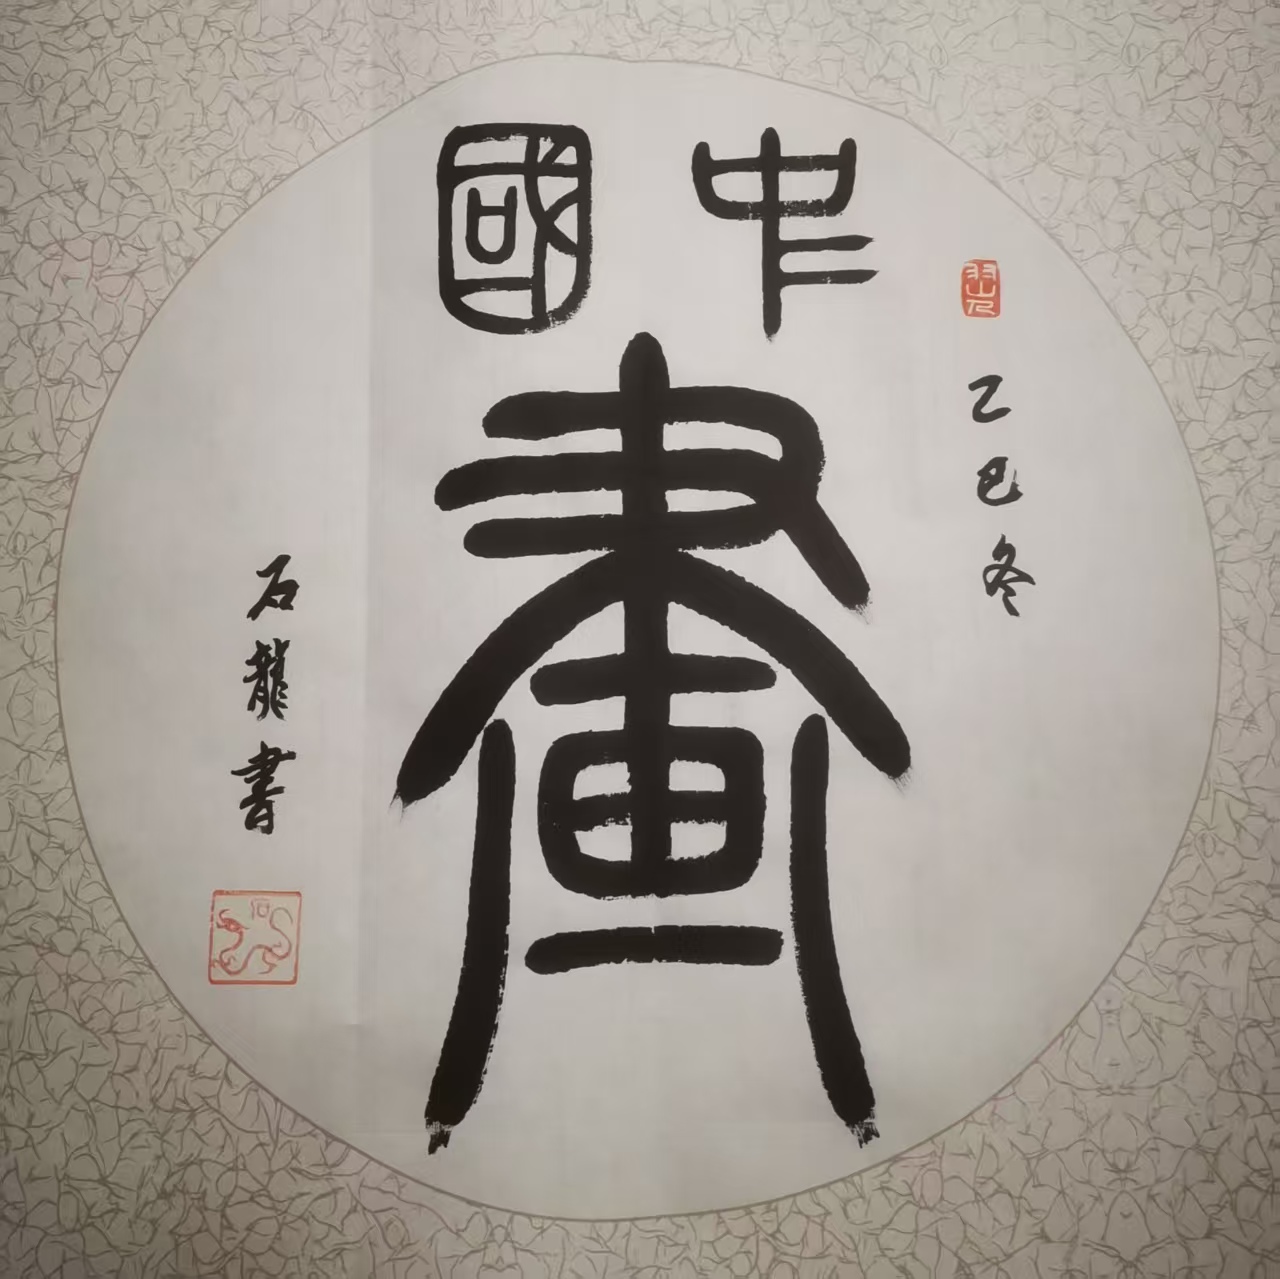 中國
畫
乙巳冬
石龍書